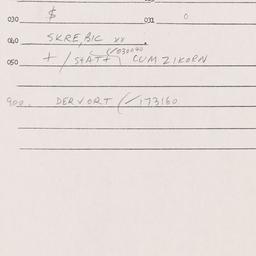 030 $ 031 0
040 SKRE, BIC xx.
(/030040
050 + / STATT CUM ZIKORN
900. DERVORT (/173160